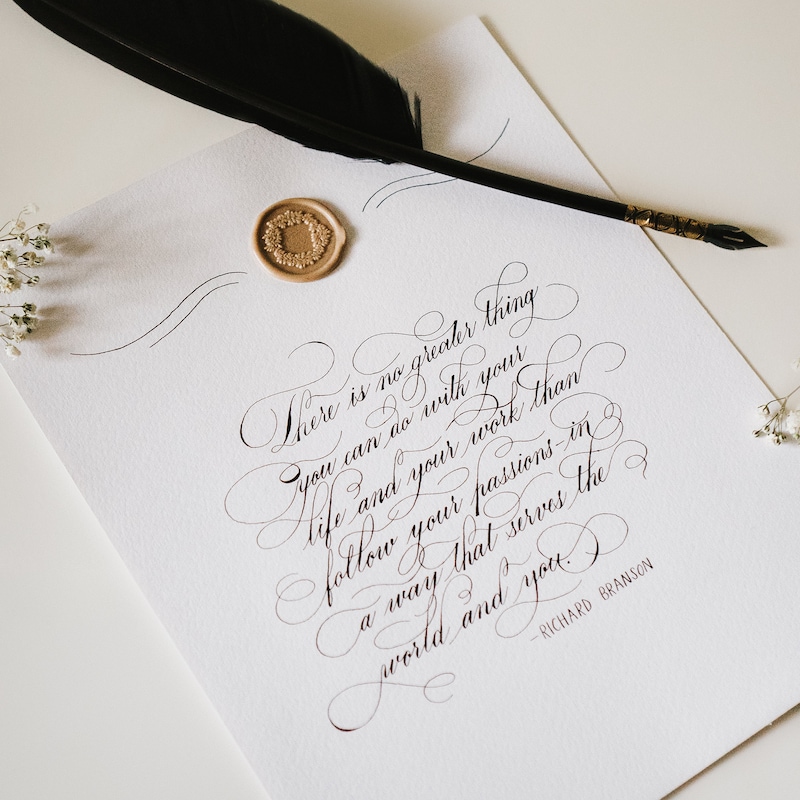 There is no greater thing
you can do with your
life and your work than
follow your passions-in
a way that serves the
world and you.
-RICHARD BRANSON